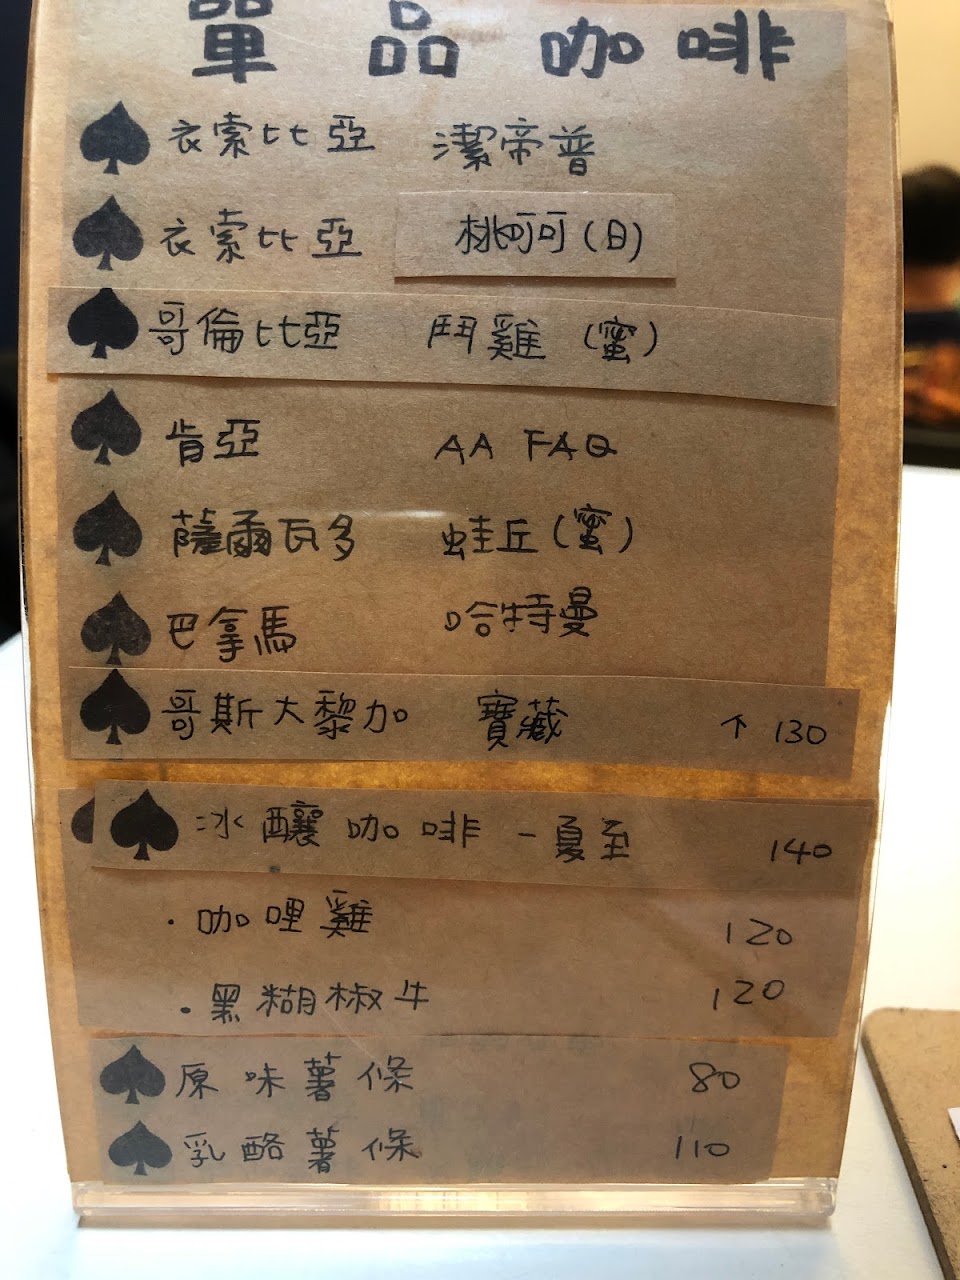 單品咖啡
衣索比亞 潔蒂普
衣索比亞 桃可可(日)
哥倫比亞 鬥雞(蜜)
肯亞 AA FAQ
薩爾瓦多 蛙丘(蜜)
巴拿馬 哈特曼
哥斯大黎加 寶藏 ↑130
冰釀咖啡-夏至 140
·咖哩雞 120
·黑糊椒牛 120
原味薯條 80
乳酪薯條 110